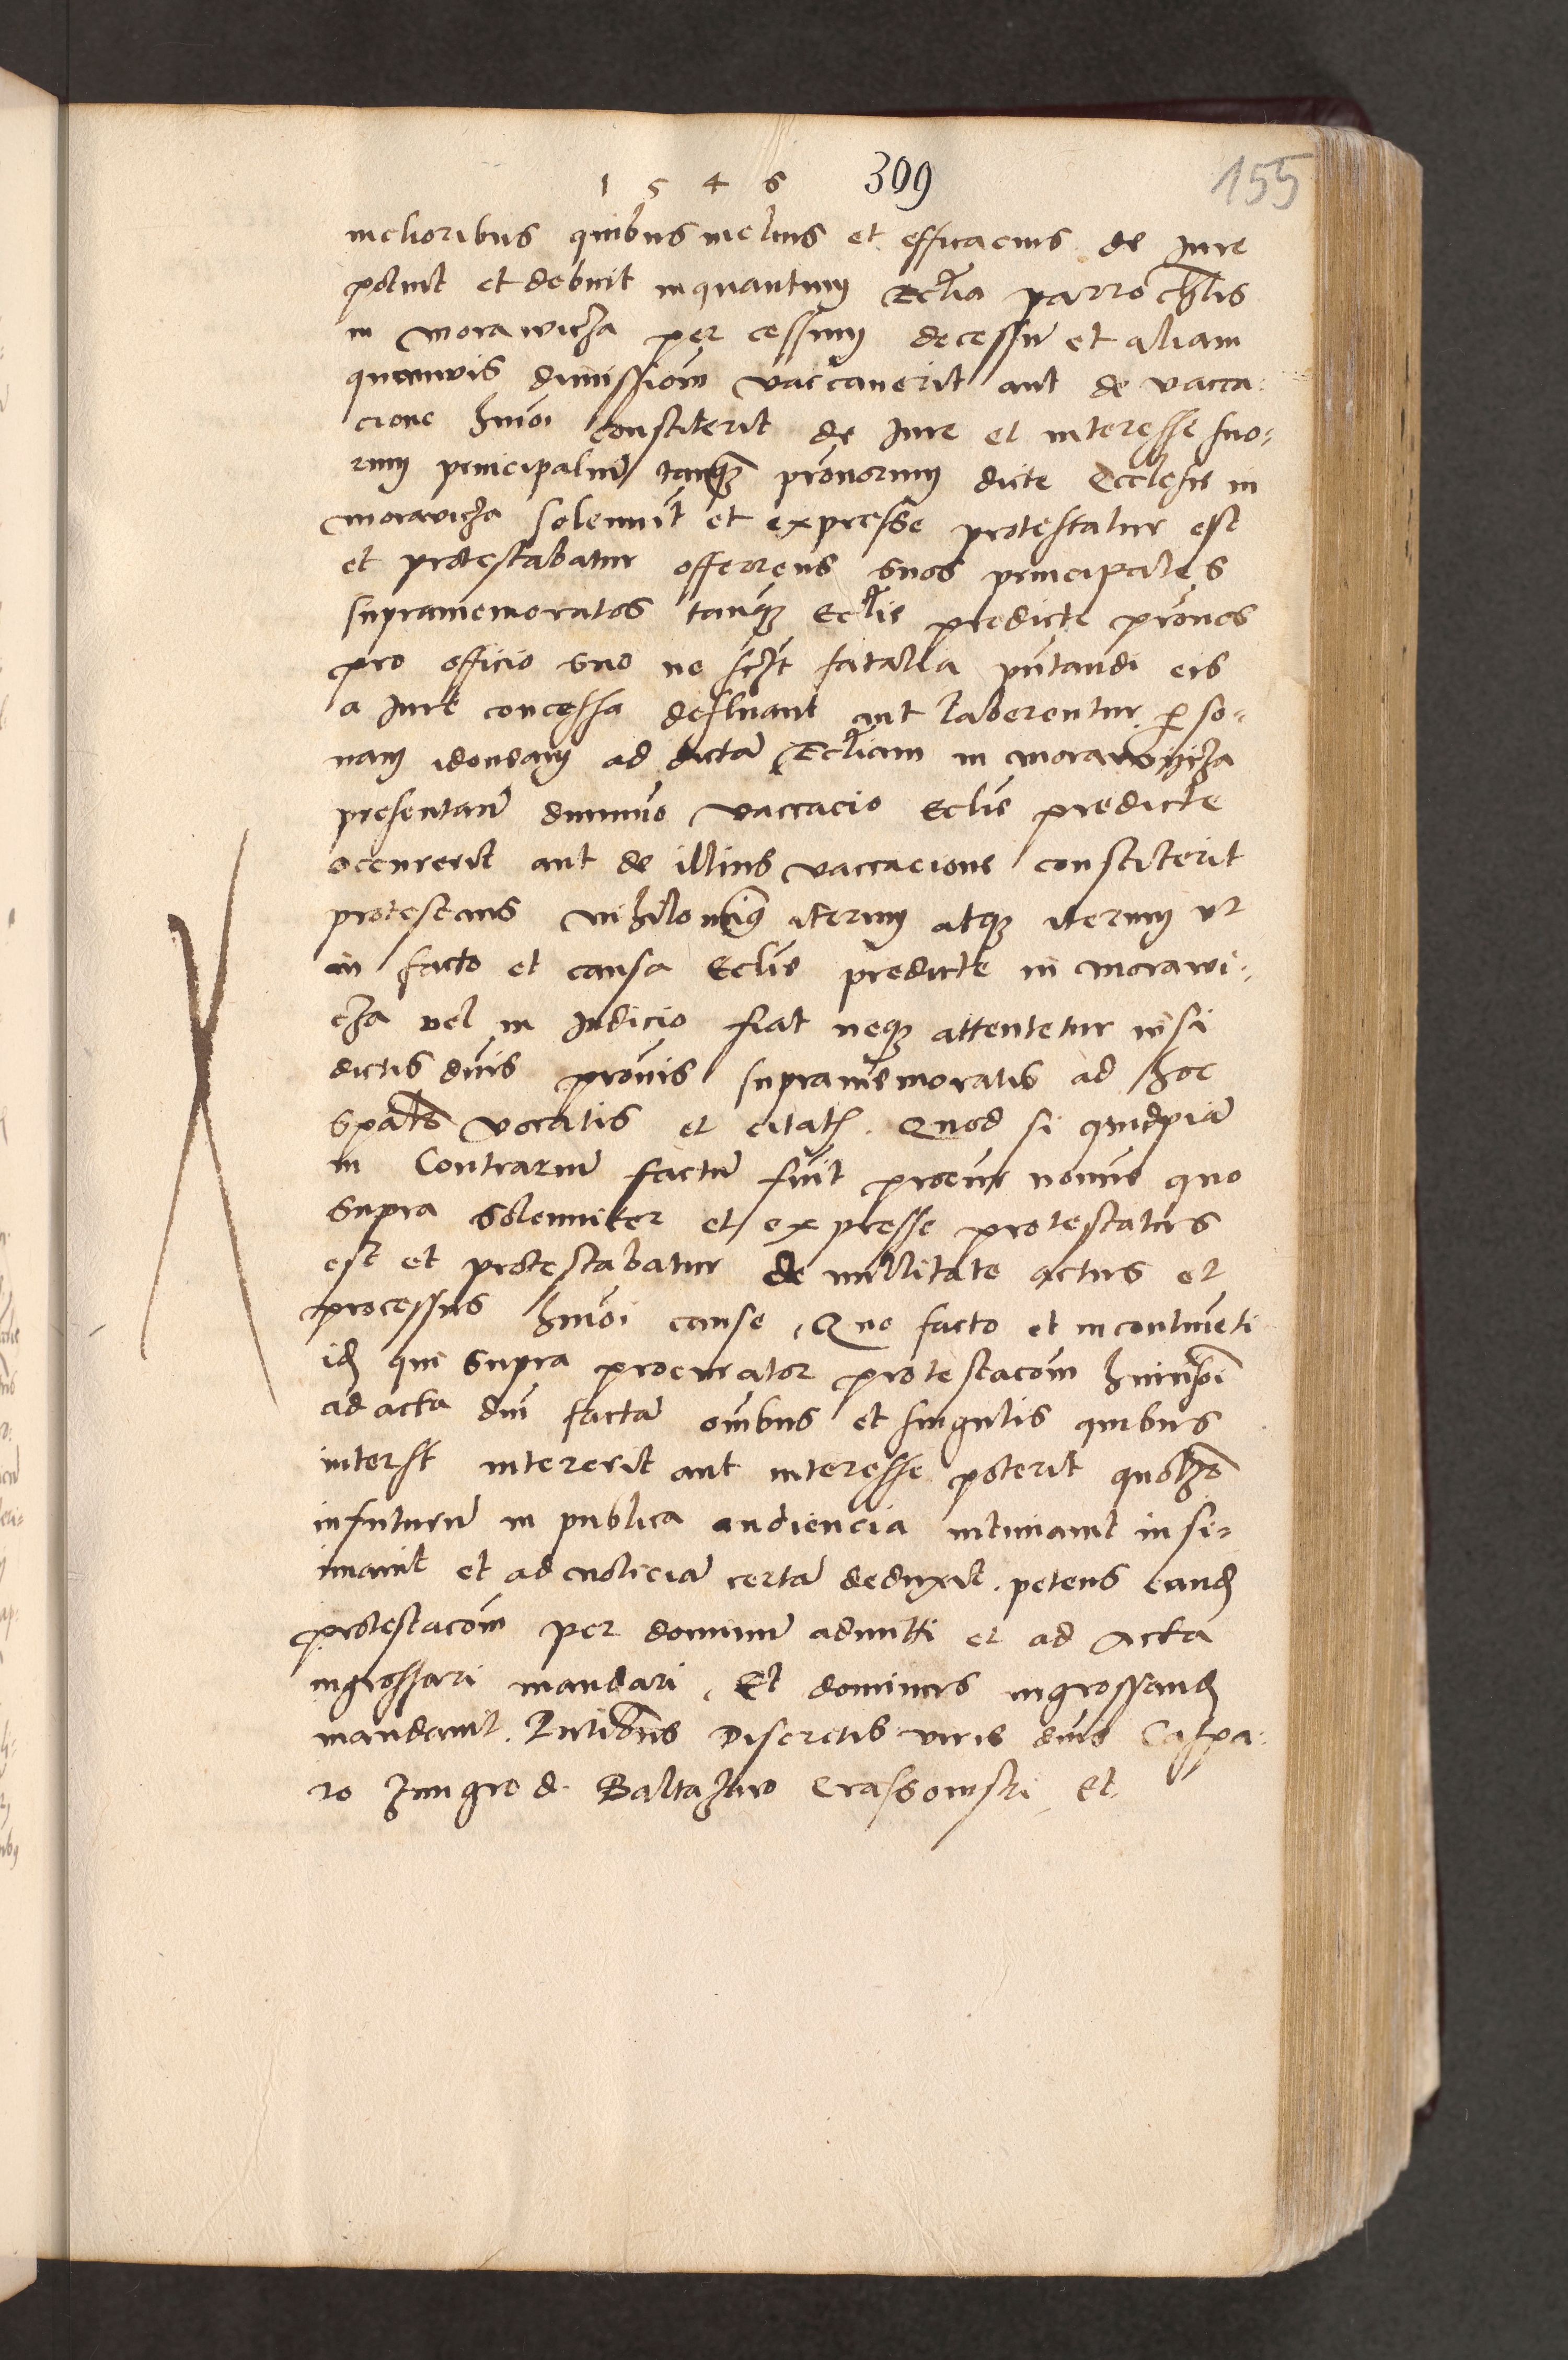 1 5 4 6 309 155
melioribus quibus melius et efficacius de Iure
potuit et debuit inquantum Ecclia parrochlis
in morawicza per cessum decessum et aliam
quamvis dimissiom vaccaverit aut de vacca-
cione hmoi constiterit de Iure et interesse suo-
rum principalium tanquam pronorum dicte Ecclesie in
moravicza solenniter et expresse protestatur est
et protestabatur offerrens suos principales
supramemoratos tanquam Ecclie predicte pronos
pro officio suo ne scilicet fatalia presentandi eis
a Iure concessa defluant aut laberentur perso-
nam idoneam ad dictam Eccliam in morawicza
presentare dummodo vaccacio Eclie predicte
occurrerit aut de illius vaccacione constiterit
protestans nihilominus iterum atque iterum ut
in facto et causa Eclie predicte in morawi-
cza vel in Iudicio fiat neque attentetur nisi
dictis dnis pronis supramemoratis ad hoc
vocatis et citatis. Quod si quidpiam
in Contrarium factum fuerit procur nomine quo
supra solenniter et expresse protestatus
est et protestabatur de nullitate actus et
processus hmoi cause, Quo facto et incontinenti
idem qui supra procurator protestacom huiusmodi
ad acta dni factam omibus et singulis quibus
interest intererit aut interesse poterit
infuturum in publica audiencia intimavit insi-
nuavit et ad noticiam certam deduxit. petens eandem
protestacom per dominum admitti et ad Acta
ingrossari mandari, Et dominus ingrossandam
mandavit. Discretis viris dnis Caspa-
ro d. Baltazaro Crassowski et